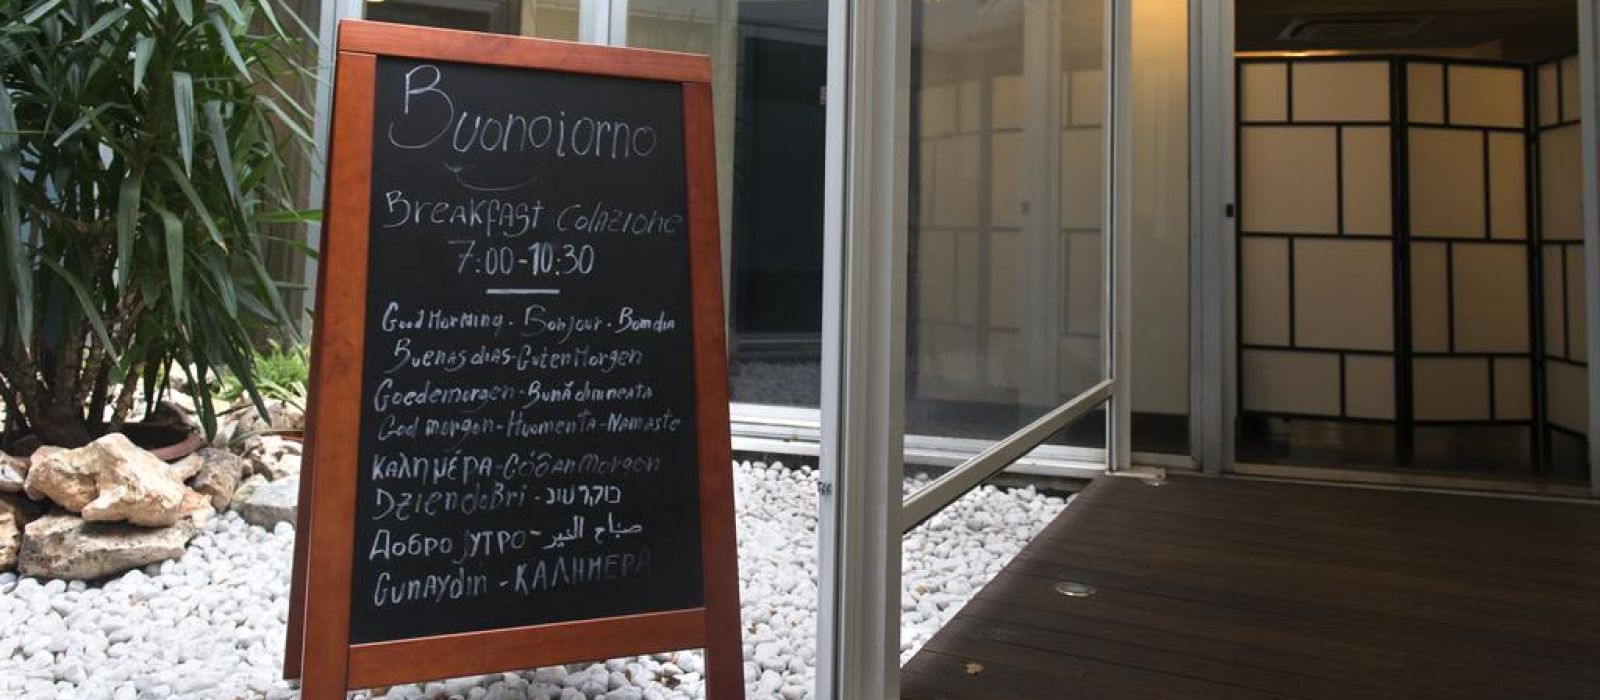 Buongiorno
Breakfast Colazione
7:00-10:30
Good Morning . Bonjour . Bom dia
Buenas dias-Guten Morgen
Goedemorgen-Bună dimneata
God morgon-Huomenta-Namaste
ΚΑΛΗΜΈΡΑ-Góðan Morgon
Dzien doBri-בוקר טוב
Добро јутро-صباح الخير
Gunaydin-ΚΑΛΗΜΕΡΑ